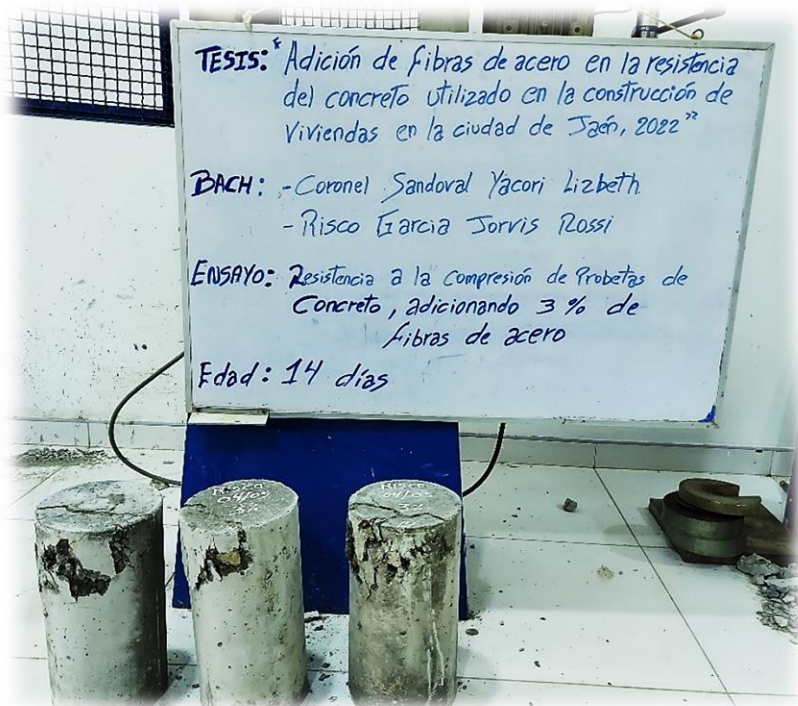 TESIS: "Adición de fibras de acero en la resistencia
del concreto utilizado en la construcción de
viviendas en la ciudad de Jaén, 2022"
BACH: - Coronel Sandoval Yacori Lizbeth
- Risco Garcia Jorvis Rossi
ENSAYO: Resistencia a la compresión de Probetas de
Concreto, adicionando 3 % de
fibras de acero
Edad: 14 días
04/05
3%
Risco
04/05
3%